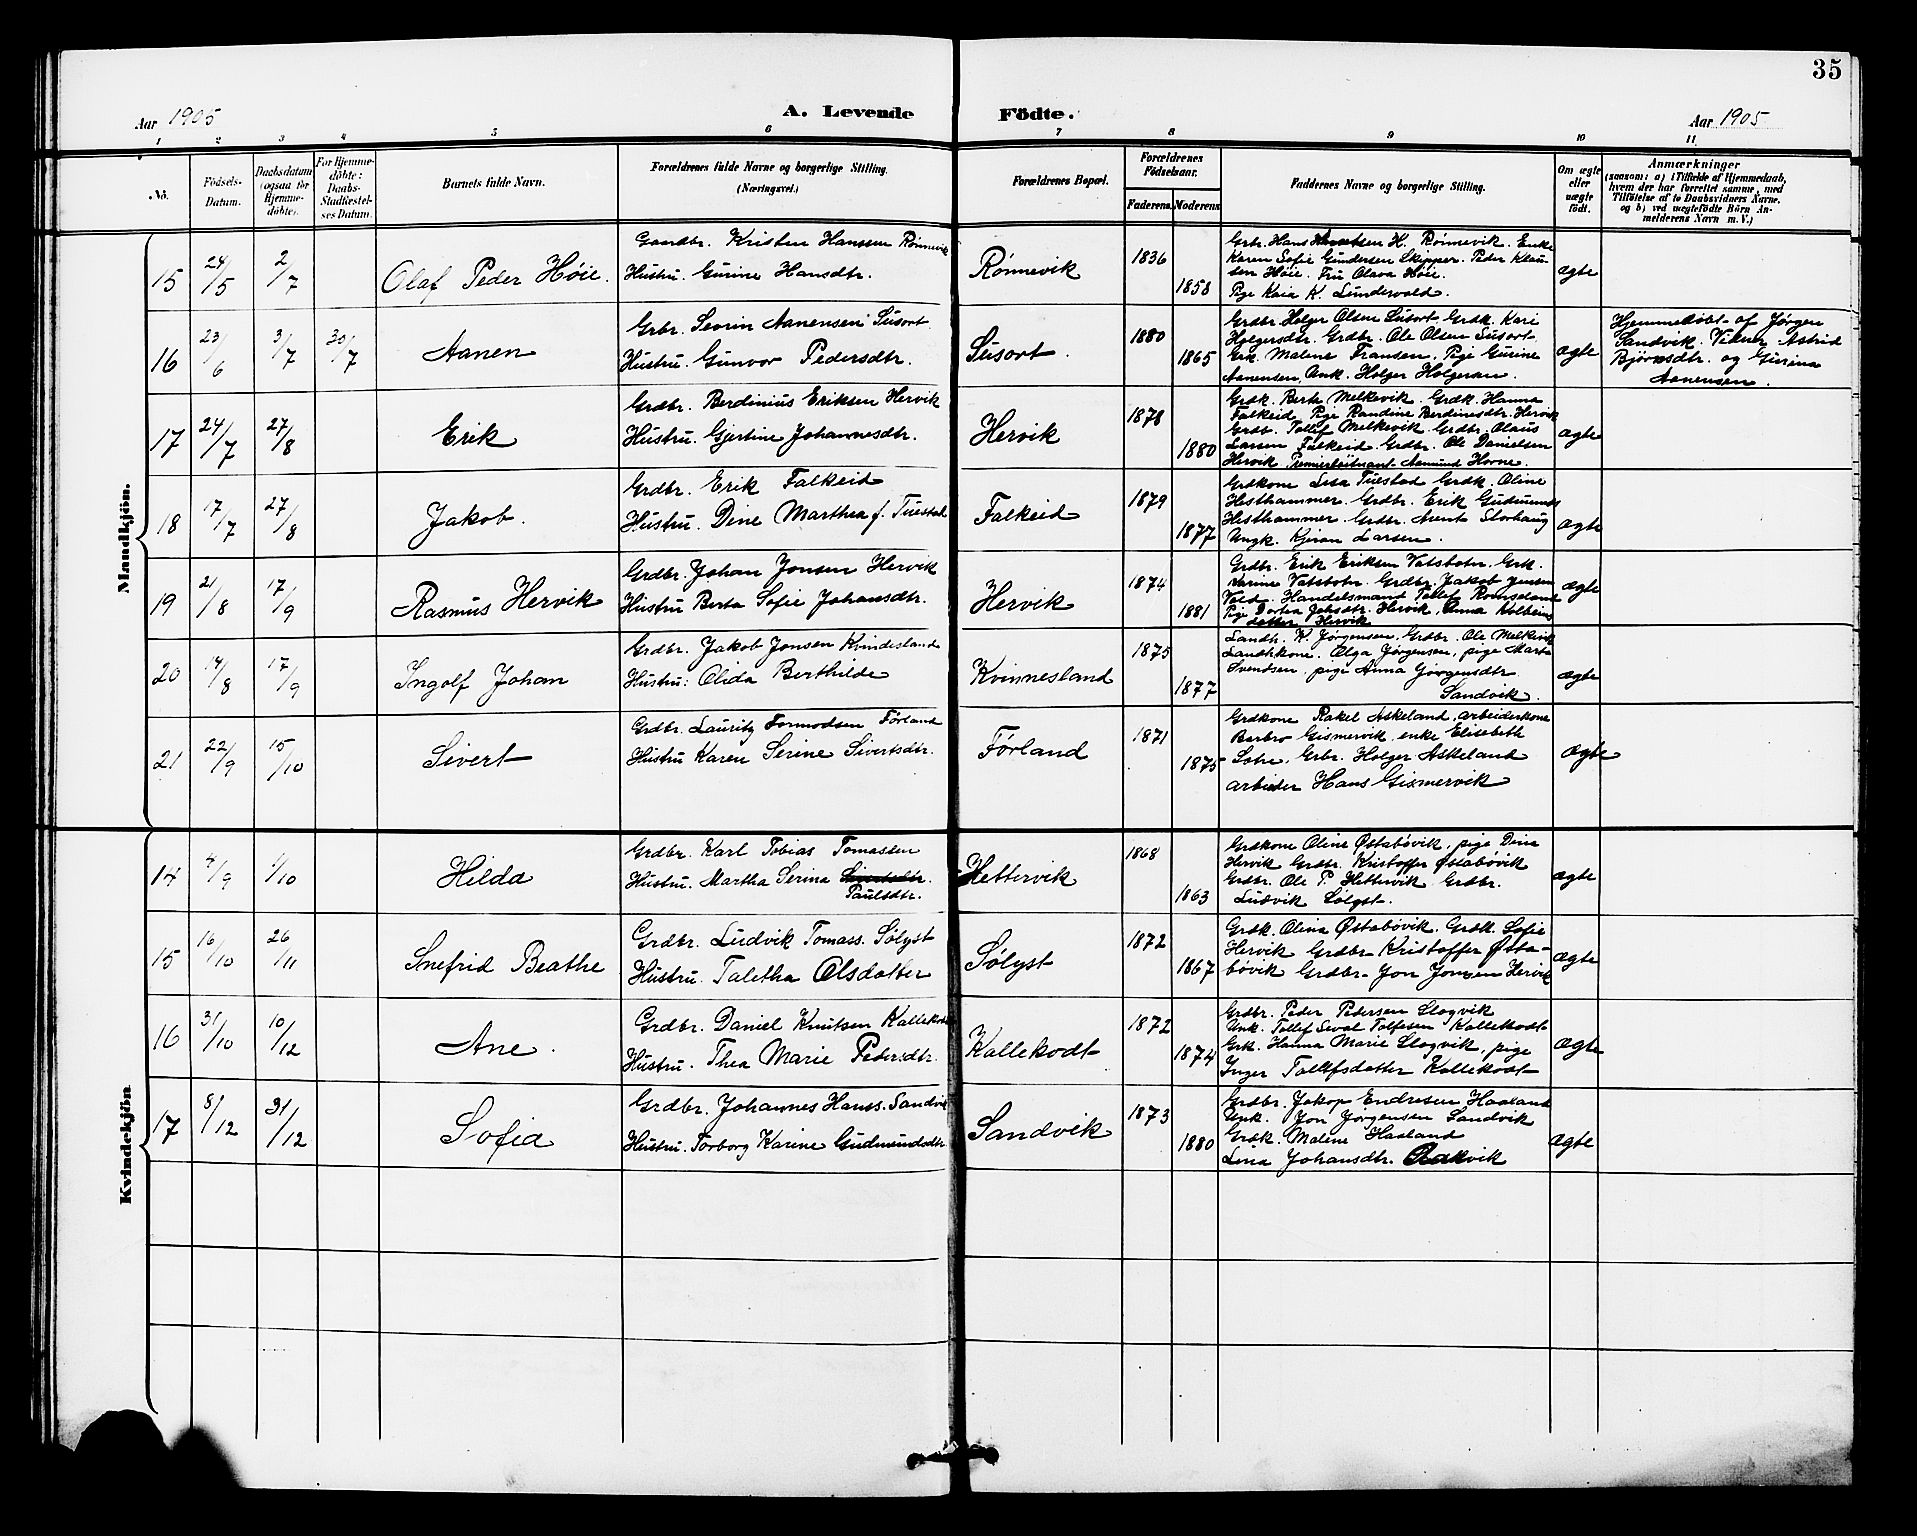 35
Aar 1905
A. Levende Födte.
Aar 1905
1 2 3 4 5 6 7 8 9 10 11
No.
Födsels-Datum.
Daabsdatum (ogsaa for Hjemme-döbte).
For Hjemme-döbte: Daabs-Stadfæstel-ses Datum.
Barnets fulde Navn.
Forældrenes fulde Navne og borgerlige Stilling.
(Næringsvei.)
Forældrenes Bopæl.
Forældrenes Födselsaar.
Faderens. Moderens.
Faddernes Navne og borgerlige Stilling.
Om ægte eller uægte födt.
Anmærkninger
(saasom: a) i Tilfælde af Hjemmedaab,
hvem der har forrettet samme, med
Tilföielse af to Daabsvidners Navne,
og b) ved uægtefödte Börn An-
melderens Navn m. V.)
Mandkjön.
15 24/5 2/7 Olaf Peder Höie.
Gaardbr. Kristen Hanssen Rönnevik
Hustru. Gurine Hansdtr.
Rönnevik 1836 1858
Grbr. Hans H. Rönnevik. Enke
Karen Sofie Gundersen Skipper. Peder Klau-
sen Höie. Fru Olava Höie.
Pige Kaia K. Lundevold.
ægte
16 23/6 3/7 30/7 Aanen
Grbr. Sevrin Aanensen Susort
Hustru. Gunvor Pedersdtr.
Susort. 1880 1865
Grdbr Holger Olsen Susort Grdk. Kari
Holgersdtr. Grdbr. Ole Olsen Susort.
Grk. Malene Fransen. Pige Gurine
Aanensen, Unk. Holger Holgersen.
ægte
Hjemmedöbt af Jörgen
Sandvik. Vidner Astrid
Björnsdtr. og Gurina
Aanensen.
17 24/7 27/8 Erik
Grdbr. Berdinius Eriksen Hervik
Hustru. Gjertine Johannesdtr.
Hervik 1878 1880
Grdk. Berta Melkevik. Grdk Hanna
Falkeid Pige Randine Berdinesdtr. Hervik
Grdbr. Tollef Melkevik. Grdbr. Olaus
Larsen Falkeid. Grdbr. Ole Danielsen
Hervik. Premierlöitnant Aamund Hovne.
ægte
18 17/7 27/8 Jakob.
Grdbr. Erik Falkeid
Hustru. Dine Marthea f. Tuestad
Falkeid 1879 1877
Grdkone Lisa Tuestad Grdk. Oline
Hesthammer. Grdbr. Erik Gudmunds
Hesthammer. Grdbr. Arent Storhaug
Ungk. Larsen.
ægte
19 21/8 17/9 Rasmus Hervik
Grdbr. Johan Jonsen Hervik
Hustru Berta Sofie Johansdtr.
Hervik 1874 1881
Grdbr. Erik Eriksen Vatsbotn. Grk.
Vatsbotn. Grdbr. Jakob Jensen
Vold. Handelsmand Tollef
Pige Dortea Hervik. Anna Kolbeins
datter Hervik
ægte
20 14/8 17/9 Ingolf Johan
Grdbr. Jakob Jonsen Kvindesland
Hustru: Olida Berthilde
Kvinnesland 1875 1877
Landh. K. Jörgensen. Grdbr. Ole Melkevik
Landhkone. Olga Jörgensen, pige Marta
Svendsen. pige Anna Jörgensdtr
Sandvik.
ægte
21 22/9 15/10 Sivert
Grdbr. Lauritz Tormodsen Förland
Hustru Karen Serine Sivertsdtr.
Förland 1871 1875
Grdkone Rakel Askeland. arbeiderkone
Barbro Gismervik. enke Elisebeth
Grbr. Holger Askeland
arbeider Hans Gismervik
ægte
Kvindekjön
14 4/9 1/10 Hilda
Grdbr. Karl Tobias Tomassen
Hustru. Martha Serina
Paulsdtr.
Hettervik 1868 1863
Grdkone Oline Östabövik, pige Dina
Hervik Grdbr. Kristoffer Östabövik
Grdbr. Ole P. Hettervik Grdbr.
Ludvik Sölyst.
ægte
15 16/10 26/11 Snefrid Beathe
Grdbr. Ludvik Tomass. Sölyst
Hustru. Taletha Olsdatter
Sölyst 1872 1867
Grdk. Olina Östabövik. Grdk. Sofie
Hervik Grdbr Kristoffer Östa-
bövik Grdbr. Jon Jonsen Hervik
ægte
16 31/10 10/12 Ane.
Grdbr. Daniel Knutsen Kallekodt
Hustru. Thea Marie Pedersdtr.
Kallekodt 1872 1874
Grdbr. Peder Pedersen Slogvik
Unk. Tollef Seval Tolfesen Kallekodt
Grk. Hanna Marie Slogvik, pige
Inger Tollefsdatter Kallekodt
ægte
17 8/12 31/12 Sofia
Grdbr. Johannes Hanss. Sandvik
Hustru. Torborg Karine Gudmundsdtr
Sandvik 1873 1880
Grdbr. Jakop Endresen Haaland
Unk. Jon Jörgensen Sandvik
Grdk. Malene Haaland
Lina Johansdtr.
ægte